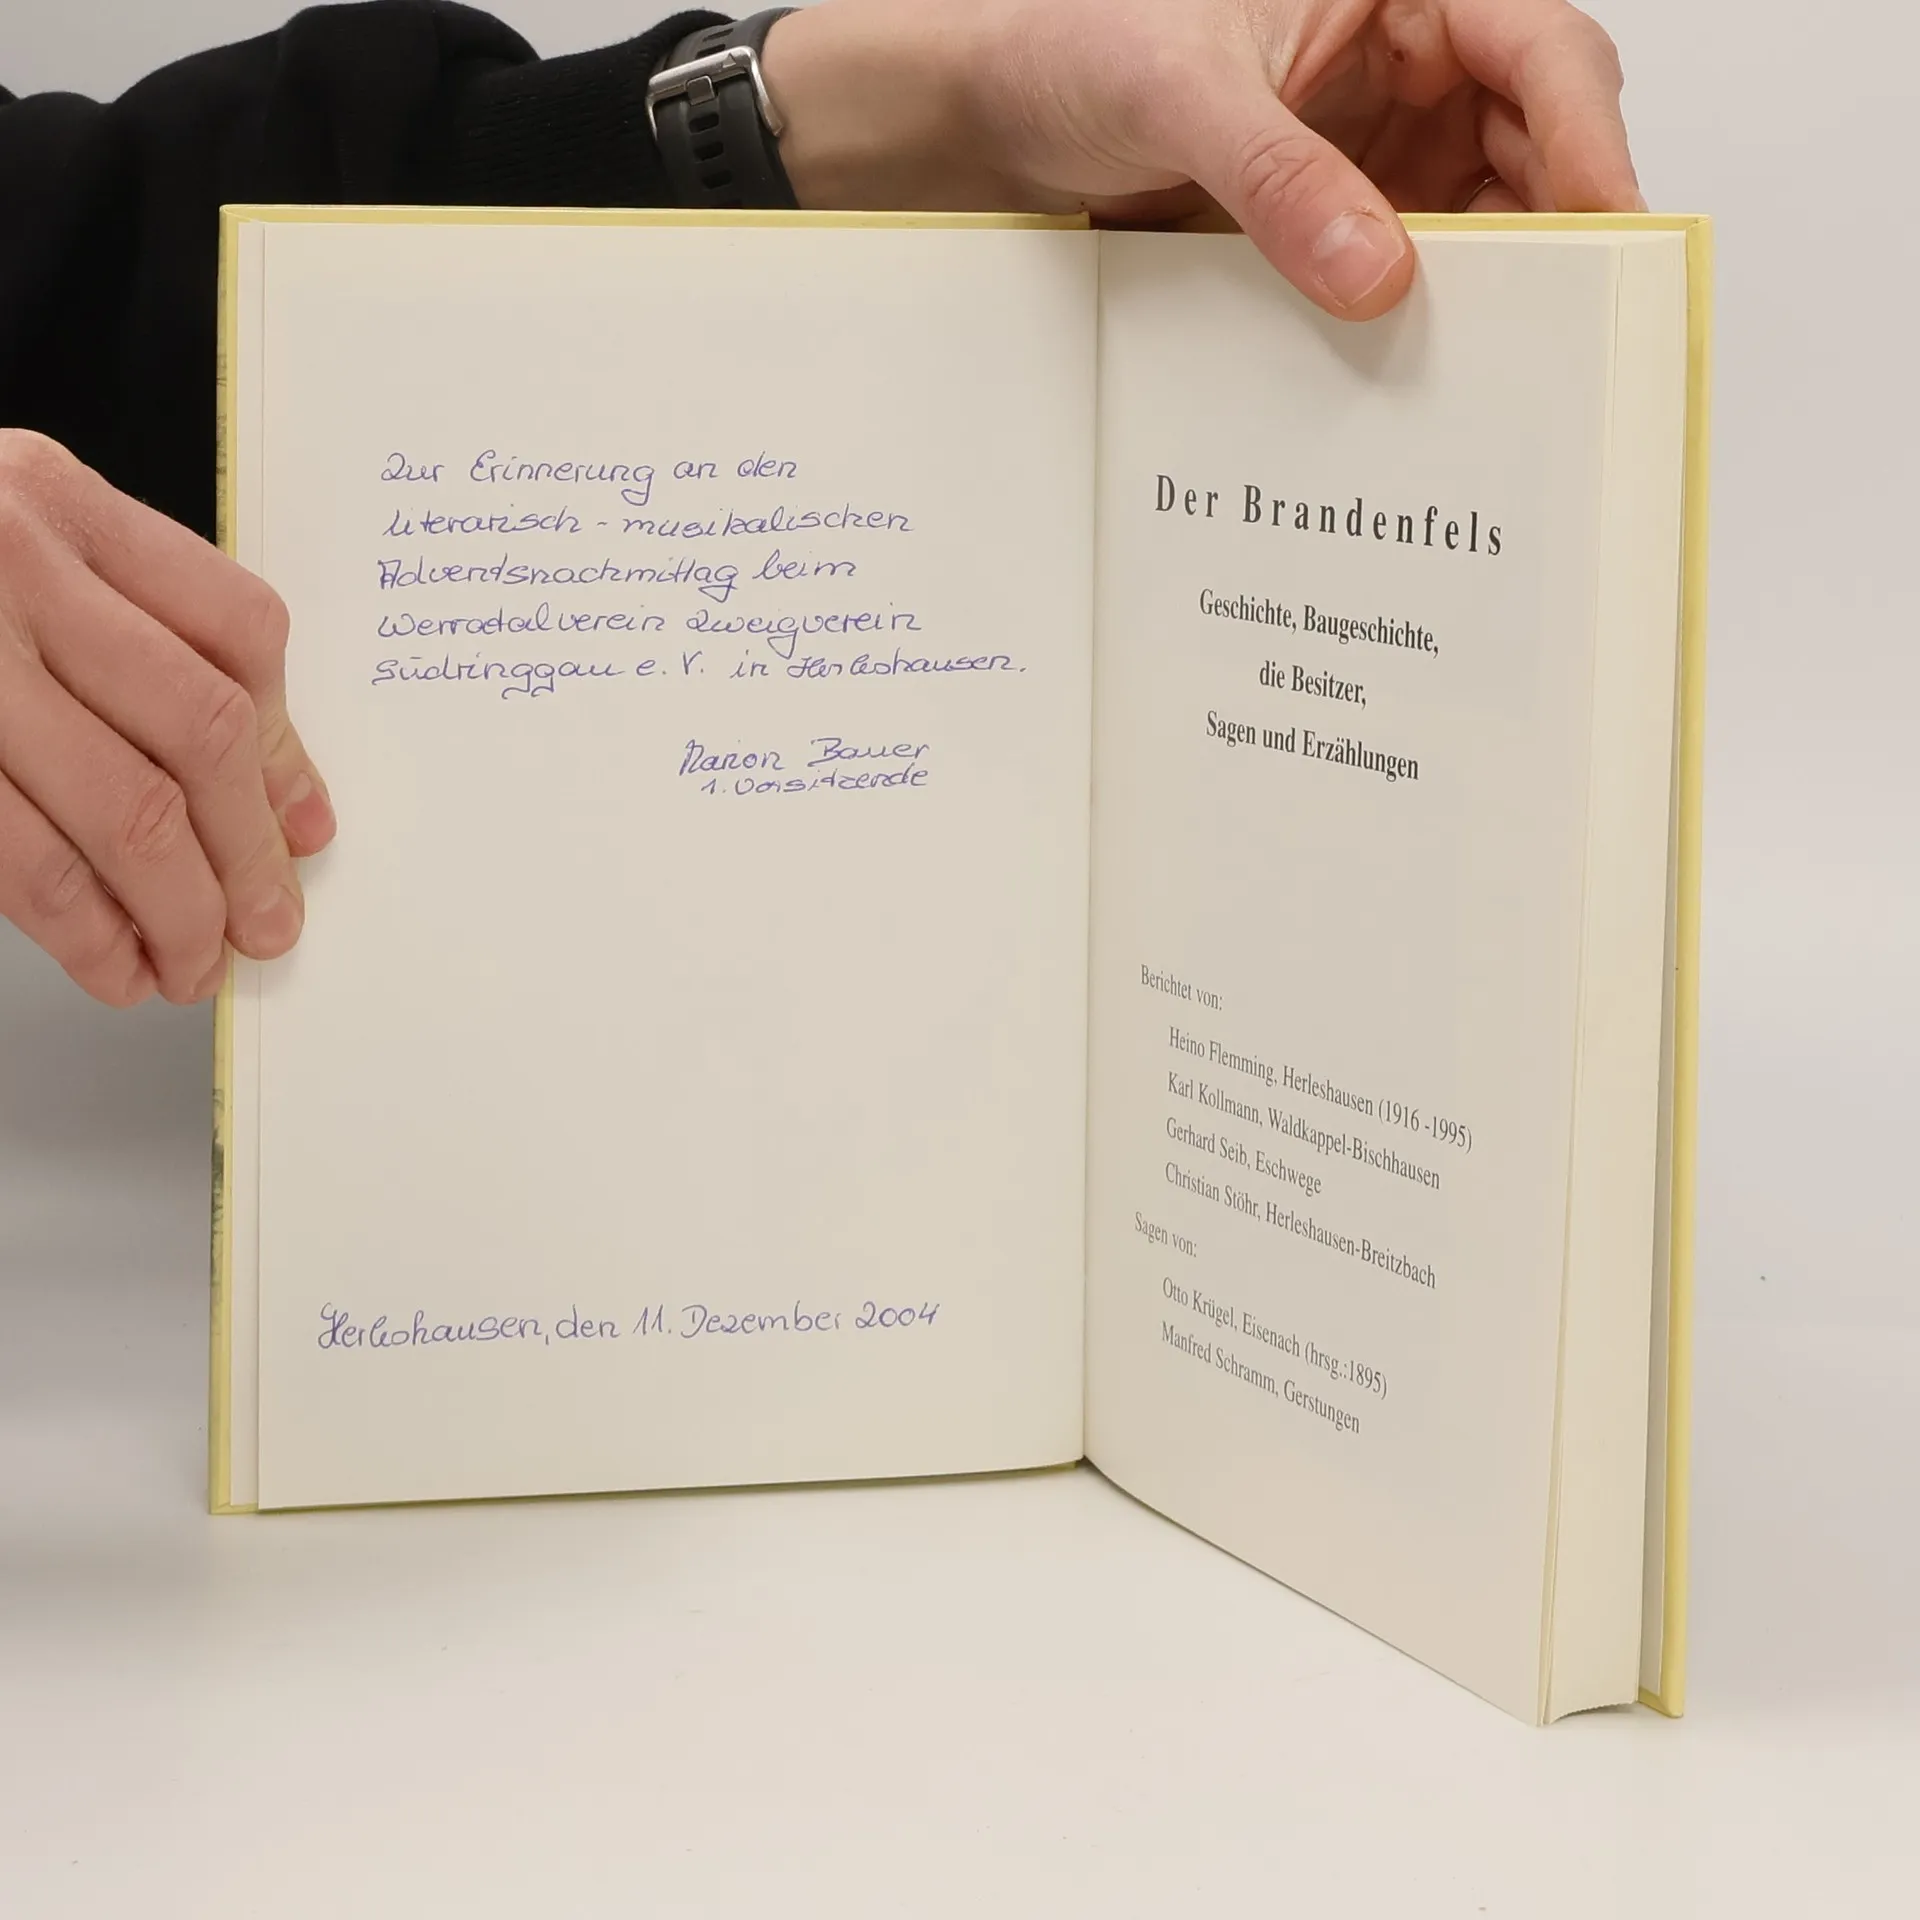 Zur Erinnerung an den
literarisch - musikalischen
Adventsnachmittag beim
Werratalverein Zweigverein
Südringgau e. V. in Herleshausen.
Marion Bauer
1. Vorsitzende
Herleshausen, den 11. Dezember 2004
Der Brandenfels
Geschichte, Baugeschichte,
die Besitzer,
Sagen und Erzählungen
Berichtet von:
Heino Flemming, Herleshausen (1916 -1995)
Karl Kollmann, Waldkappel-Bischhausen
Gerhard Seib, Eschwege
Christian Stöhr, Herleshausen-Breitzbach
Sagen von:
Otto Krügel, Eisenach (hrsg.:1895)
Manfred Schramm, Gerstungen